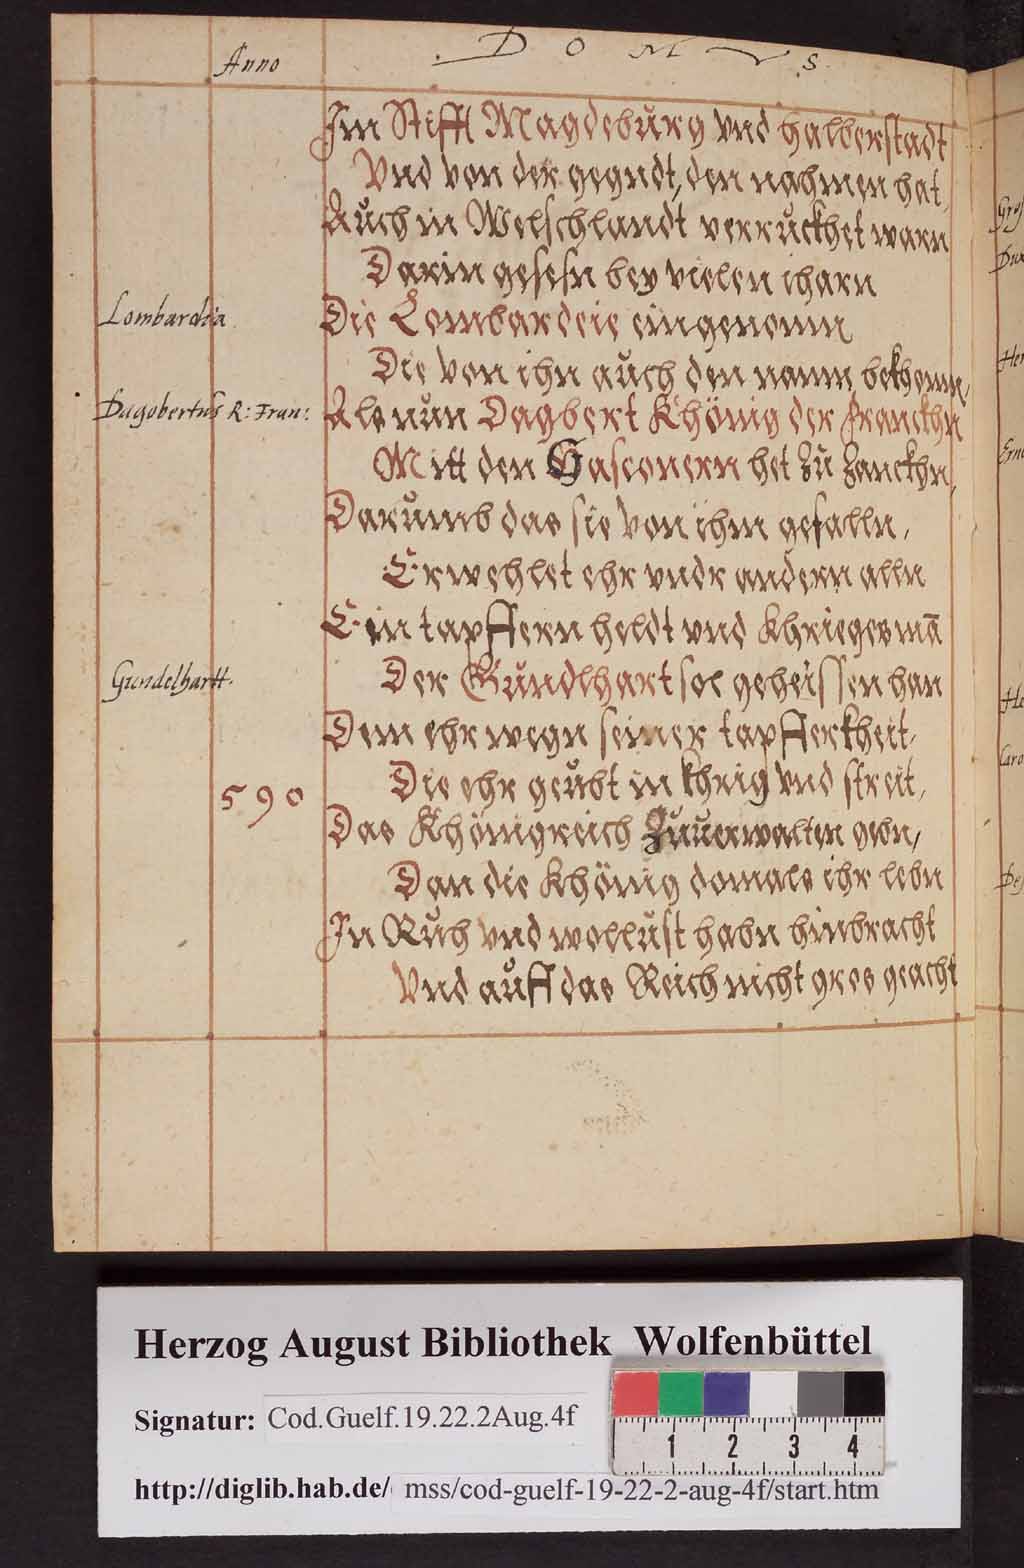 Anno
D O M V S
Im Stifft Magdeburg vnd Halberstadt
Vnd von der gegndt, den nahmen hat,
Auch in Welschlandt verruckhet warn
Darin gesesn bey vielen iharn
Lombardia
Die Lombardeie eingenomn
Die von ihn auch den namn bekhomn,
Dagobertus R: Fran:
Als nun Dagbert Khönig der Franckhn
Mitt den Gasconern het zu zanckhn,
Darumb das sie von ihm gefalln,
Erwehlet ehr vndr andern alln
Ein tapffern heldt vnd khriegesmā
Gundelhartt.
Der Gundlhart sol geheissen han
Dem ehr wegn seiner tapfferkheit,
Die ehr geubt in khrig vnd streit,
590
Das Khönigreich zuuerwalten gebn,
Dan die khönig domals ihr lebn
In Ruh vnd wollust habn hinbracht
Vnd auff das Reich nicht gros geacht
Herzog August Bibliothek Wolfenbüttel
Signatur: Cod.Guelf.19.22.2Aug.4f
1 2 3 4
http://diglib.hab.de/ mss/cod-guelf-19-22-2-aug-4f/start.htm